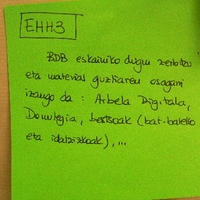 EHH3
BDB eskainiko dugun zerbitzu
eta material guztiaren osagarri
izango da: Arbela Digitala,
Donutegia, bertsoak (bat-bateko
eta idatzizkoak), ...